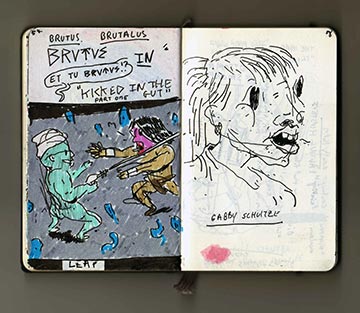 BRUTUS BRUTALUS
BRUTUS IN
ET TU BRUTUS!?
"KICKED IN THE
GUT"
PART ONE
LEAP
GABBY SCHULZE